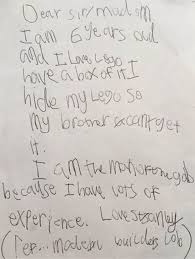 Dear sir/madam
I am 6 years owl
and I Love Lego
have a box of it I
hide my Lego so
my brother cant get
it.
I am the man for the job
because I have lots of
experience. Love stanley
(Per... model builders job)